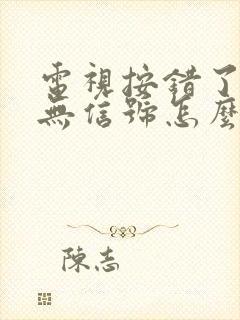 電視按錯了
無信號怎麼
陳志